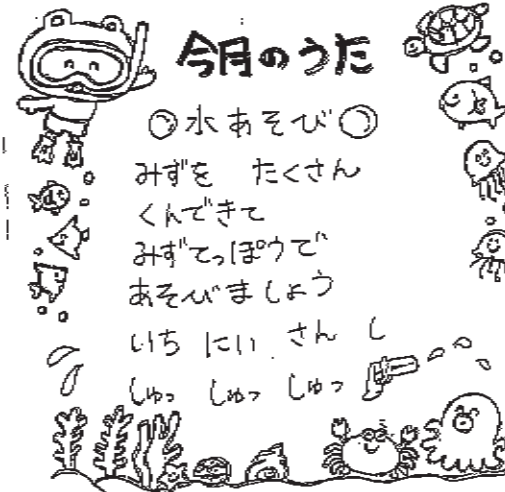 今月のうた
◎水あそび◎
みずを たくさん
くんできて
みずてっぽうで
あそびましょう
いち にい さん し
しゅっ しゅっ しゅっ